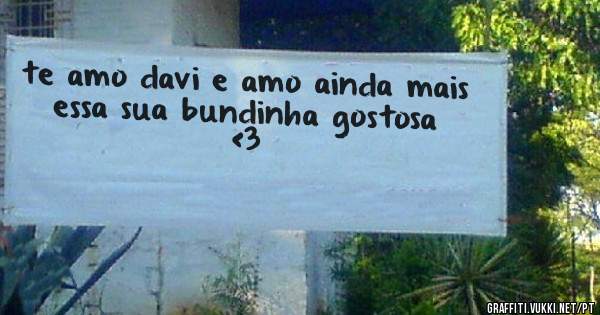 te amo davi e amo ainda mais
essa sua bundinha gostosa
<3
GRAFFITI.VUKKI.NET/PT